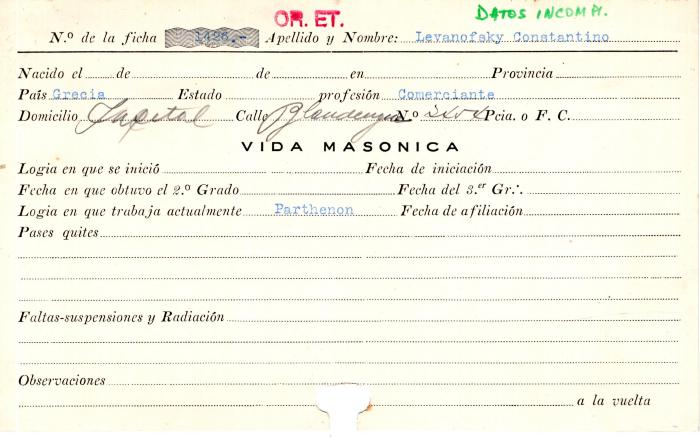 OR. ET. DATOS INCOMPL.
N.º de la ficha 1426.- Apellido y Nombre: Levanofsky Constantino
Nacido el de de en Provincia
País Grecia Estado profesión Comerciante
Domicilio Capital Calle N.º Pcia. o F. C.
VIDA MASONICA
Logia en que se inició Fecha de iniciación
Fecha en que obtuvo el 2.º Grado Fecha del 3.er Gr∴
Logia en que trabaja actualmente Parthenon Fecha de afiliación
Pases quites
Faltas-suspensiones y Radiación
Observaciones
a la vuelta